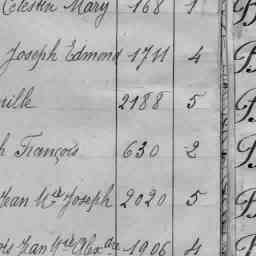 Celestin Mary 168 1
Joseph Edmond 1711 4
ville 2188 5
François 630 2
Jean Mie Joseph 2020 5
Jean Alexdre 1906 4